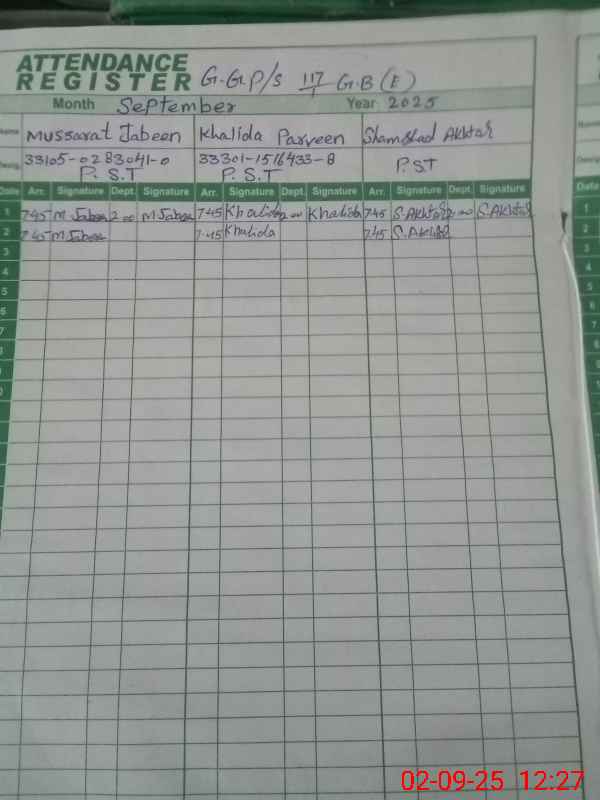 ATTENDANCE
REGISTER G.G.P/S 117/1 G.B (E)
Month September Year 2025
Name Mussarat Jabeen Khalida Parveen Shamshad Akhtar
Desig 33105-0283041-0 33301-1516433-8
P.S.T P.S.T P.S.T
Date Arr. Signature Dept. Signature Arr. Signature Dept. Signature Arr. Signature Dept. Signature Date
1 745 M Jabeen 2 00 M Jabeen 745 Khalida 2 00 Khalida 745 S.Akhtar 2 00 S.Akhtar 1
2 745 M Jabeen 7.45 Khalida 745 S.Akhtar 2
3 3
4 4
5 5
6 6
7 7
8 8
9
02-09-25 12:27